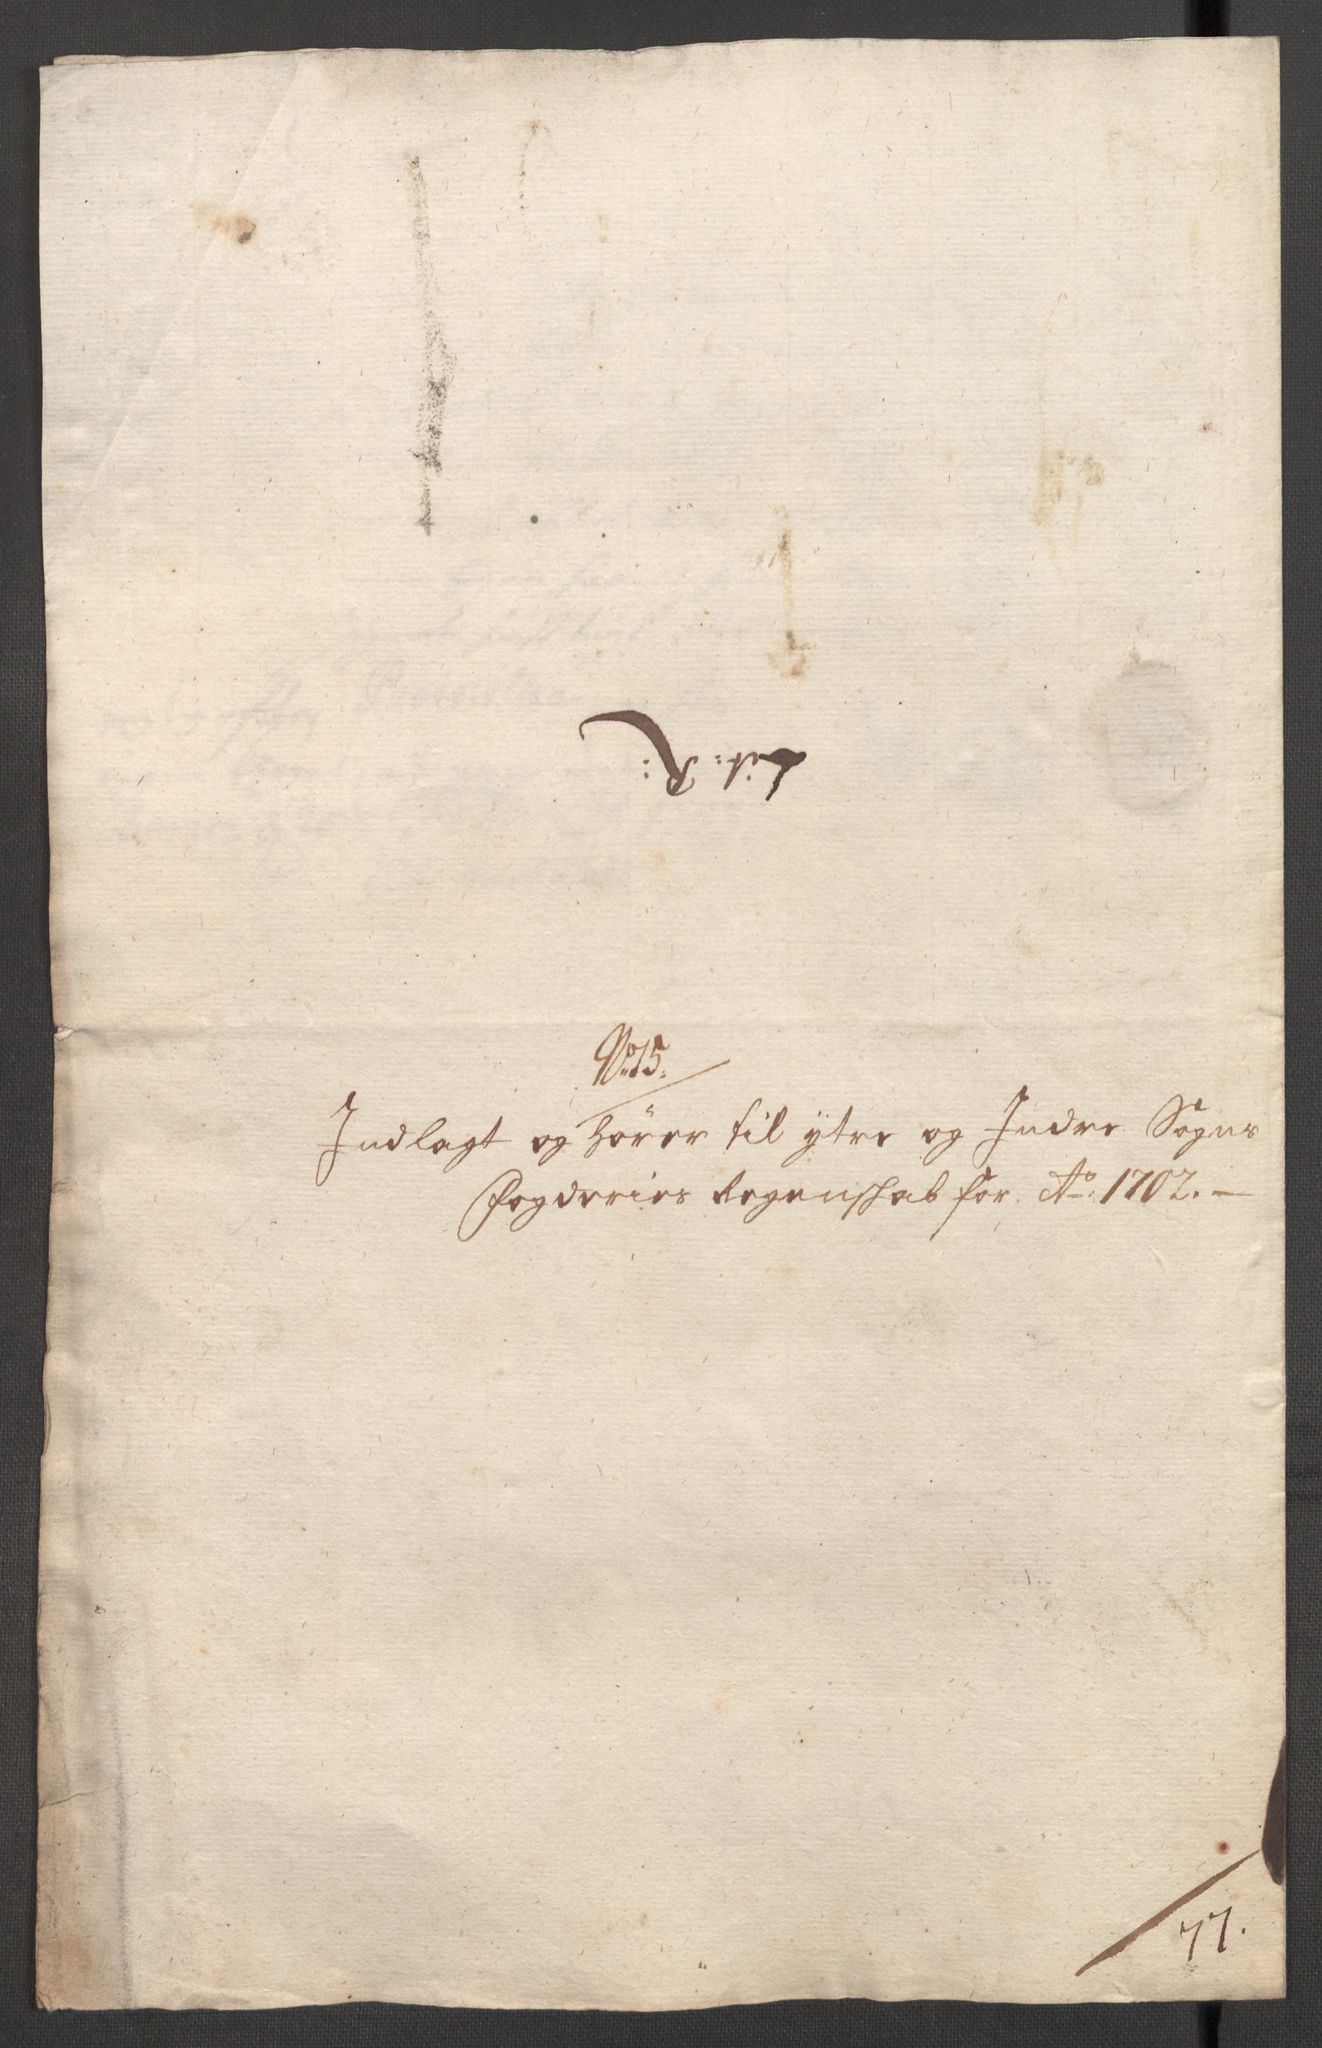 Lit: R:
No. 15.
Indlagt og hörer til ÿtre og Indre Sogns
Fogderies Regenskab for Ao: 1702. —
77.